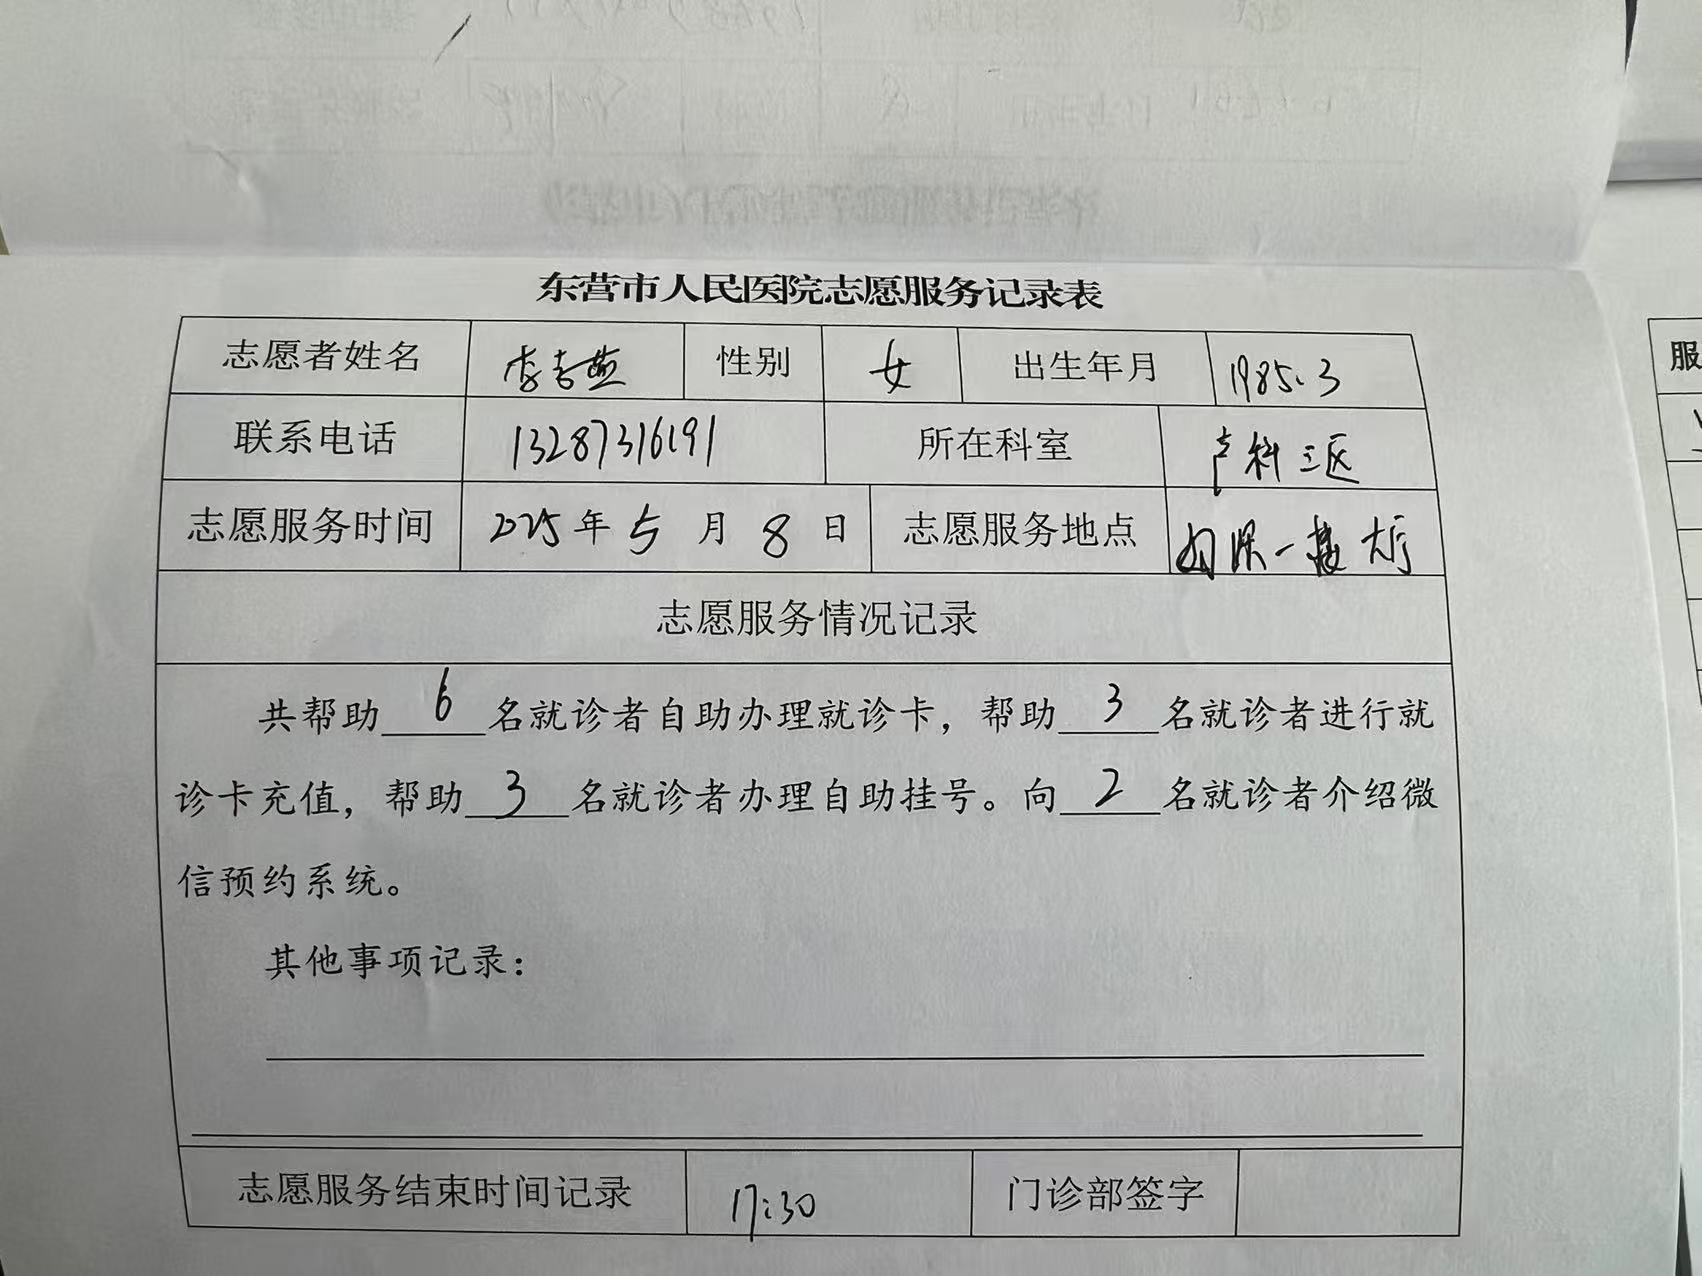 东营市人民医院志愿服务记录表
志愿者姓名 李吉燕 性别 女 出生年月 1985.3
联系电话 13287316191 所在科室 产科三区
志愿服务时间 2025年5月8日 志愿服务地点 妇保一楼大厅
志愿服务情况记录
共帮助6名就诊者自助办理就诊卡，帮助3名就诊者进行就
诊卡充值，帮助3名就诊者办理自助挂号。向2名就诊者介绍微
信预约系统。
其他事项记录：
志愿服务结束时间记录 17:30 门诊部签字
服